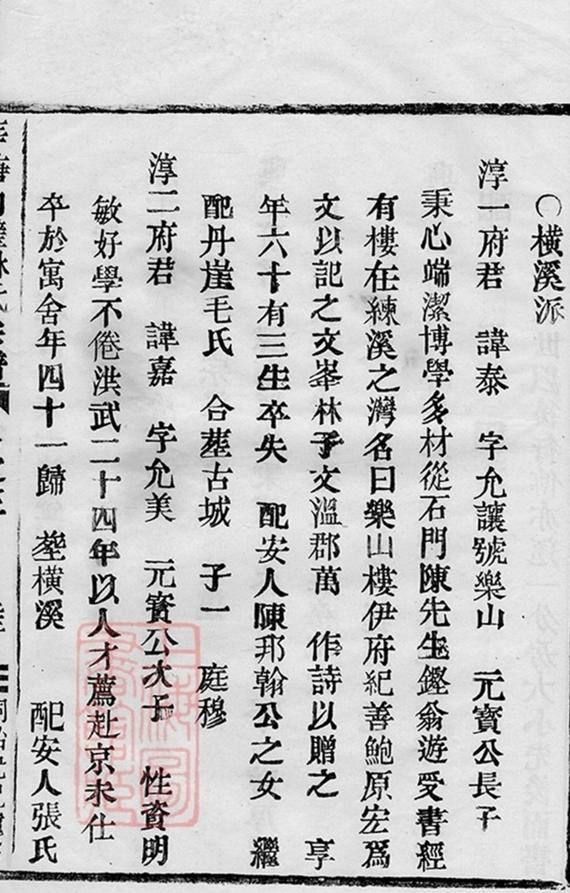 〇橫溪派
淳一府君 諱泰 字允讓號樂山 元寶公長子
秉心端潔博學多材從石門陳先生鏗翁遊受書經
有樓在練溪之灣名曰樂山樓伊府紀善鮑原宏爲
文以記之文峯林予文溫郡萬 作詩以贈之 享
年六十有三生卒失 配安人陳邦翰公之女 繼
配丹崖毛氏 合塟古城 子一 庭穆
淳二府君 諱嘉 字允美 元寶公次子 性資明
敏好學不倦洪武二十四年以人才薦赴京未仕
卒於寓舍年四十一歸 塟橫溪 配安人張氏